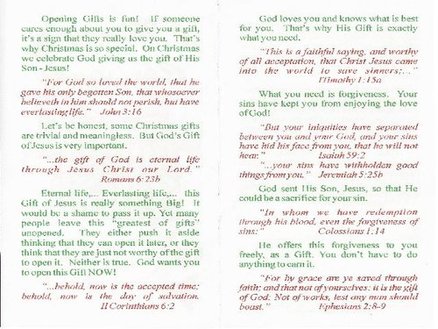 Opening Gifts is fun! If someone
cares enough about you to give you a gift,
it's a sign that they really love you. That's
why Christmas is so special. On Christmas
we celebrate God giving us the gift of His
Son - Jesus!
"For God so loved the world, that he
gave his only begotten Son, that whosoever
believeth in him should not perish, but have
everlasting life." John 3:16
Let's be honest, some Christmas gifts
are trivial and meaningless. But God's Gift
of Jesus is very important.
"...the gift of God is eternal life
through Jesus Christ our Lord."
Romans 6:23b
Eternal life,... Everlasting life,... this
Gift of Jesus is really something Big! It
would be a shame to pass it up. Yet many
people leave this "greatest of gifts"
unopened. They either push it aside
thinking that they can open it later, or they
think that they are just not worthy of the gift
to open it. Neither is true. God wants you
to open this Gift NOW!
"...behold, now is the accepted time;
behold, now is the day of salvation.
II Corinthians 6:2
God loves you and knows what is best
for you. That's why His Gift is exactly
what you need.
"This is a faithful saying, and worthy
of all acceptation, that Christ Jesus came
into the world to save sinners;..."
I Timothy 1:15a
What you need is forgiveness. Your
sins have kept you from enjoying the love
of God!
"But your iniquities have separated
between you and your God, and your sins
have hid his face from you, that he will not
hear." Isaiah 59:2
"...your sins have withholden good
things from you." Jeremiah 5:25b
God sent His Son, Jesus, so that He
could be a sacrifice for your sin.
"In whom we have redemption
through his blood, even the forgiveness of
sins:" Colossians 1:14
He offers this forgiveness to you
freely, as a Gift. You don't have to do
anything to earn it.
"For by grace are ye saved through
faith; and that not of yourselves: it is the gift
of God: Not of works, lest any man should
boast." Ephesians 2:8-9